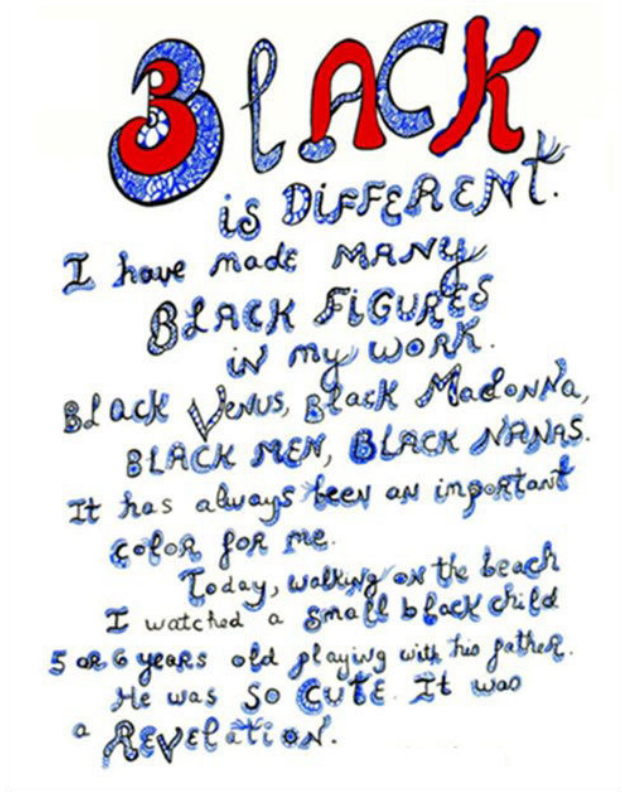 BlACK
is DiFFERENt.
I have made MANy
BLACK FiGURES
iN my WORK.
BLack VeNUS, Black MadoNNa,
BLACK MEN, BLACK NANAS.
It has always been an important
color for me.
Today, walking on the beach
I watched a small black child
5 or 6 years old playing with his father.
He was SO CUTE. It was
a REVElatioN.